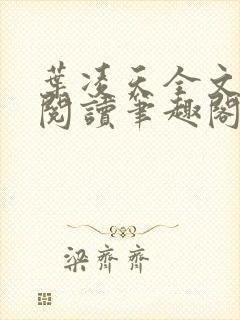 葉凌天全文
閱讀筆趣閣
梁齊齊